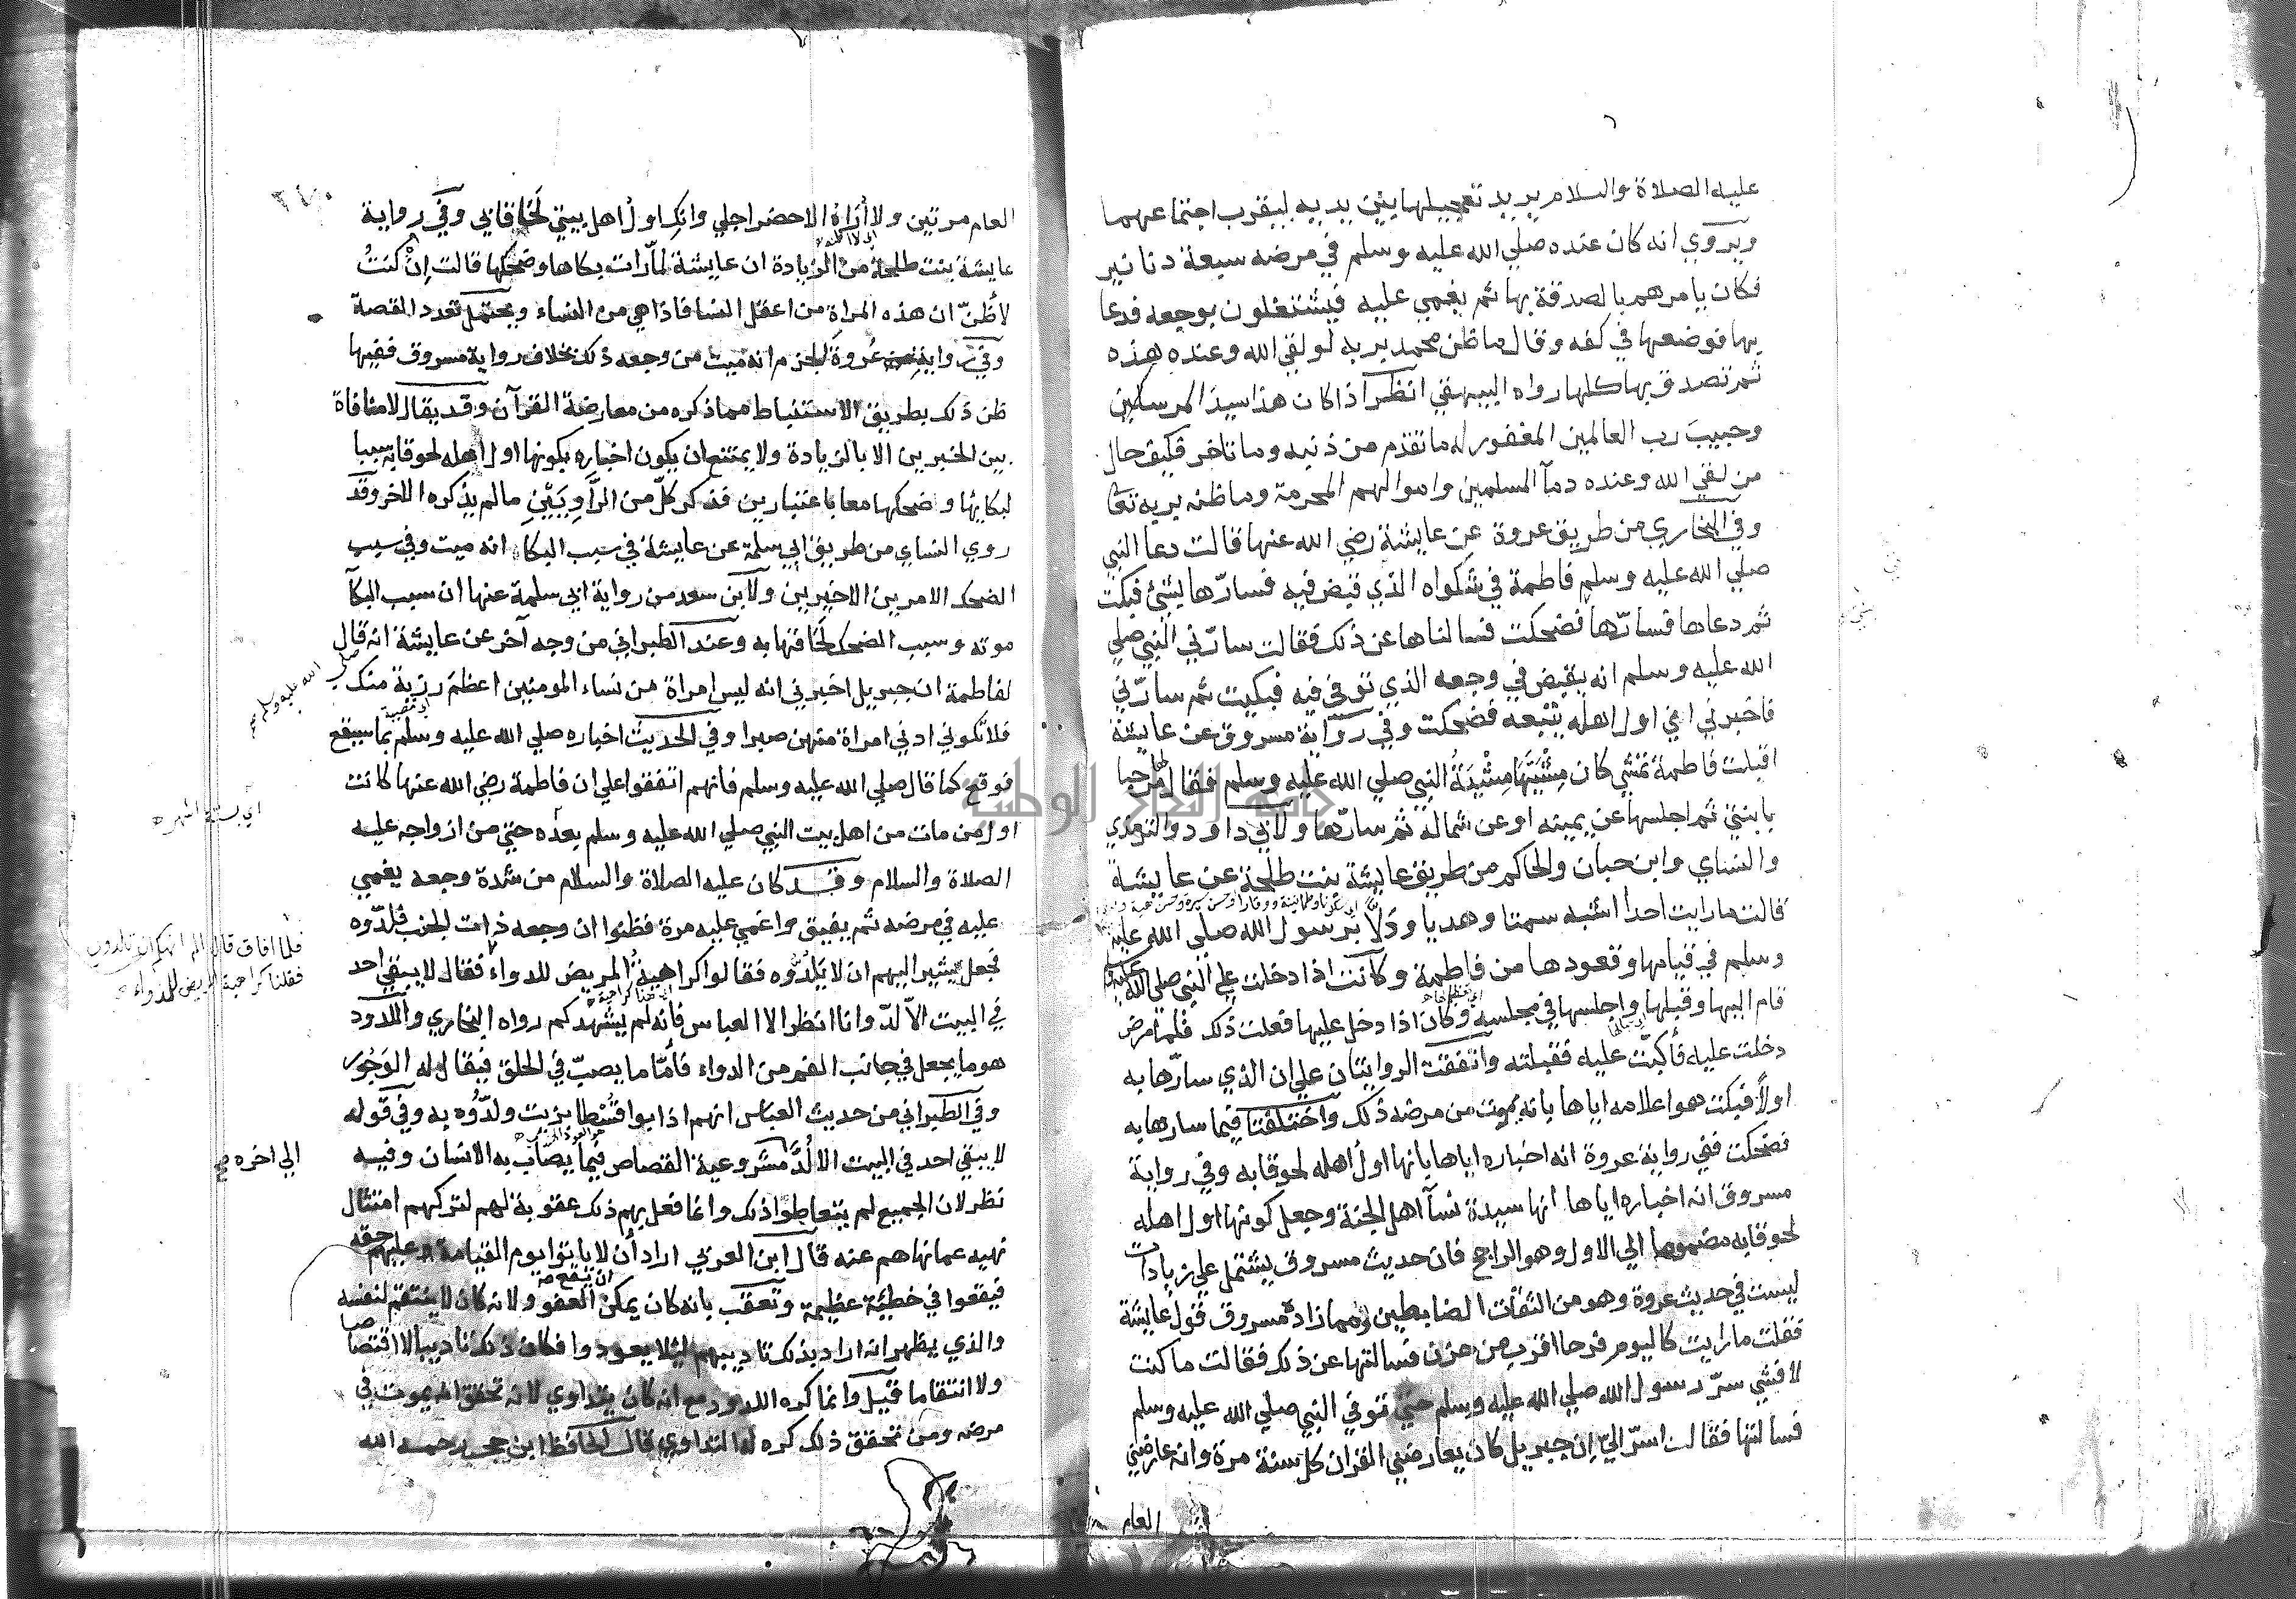 عليه الصلاة والسلام يريد تعجيلها بين يديه ليقرب اجتماعهما
ويروي انه كان عنده صلي الله عليه وسلم في مرضه سبعة دنانير
فكان يامرهم بالصدقة بها ثم يغمي عليه فيشتغلون بوجعه فدعا
بها فوضعها في كفه وقال ما ظن محمد بربه لو لقي الله وعنده هذه
ثم تصدق بها كلها رواه البيهقي انظر اذا كان هذا سيد المرسلين
وحبيب رب العالمين المغفور له ما تقدم من ذنبه وما تاخر فكيف حال
من لقي الله وعنده دمآ المسلمين واموالهم المحرمة وما ظنه بربه تعا
وفي البخاري من طريق عروة عن عايشة رضي الله عنها قالت دعا النبي
صلي الله عليه وسلم فاطمة في شكواه الذي قبض فيه فسارّها بشئ فبكت
ثم دعاها فسارّها فضحكت فسالناها عن ذلك فقالت سارّني النبي صلي
الله عليه وسلم انه يقبض في وجعه الذي توفي فيه فبكيت ثم سارّني
فاخبرني اني اول اهله يتبعه فضحكت وفي رواية مسروق عن عايشة
اقبلت فاطمة تمشي كان مِشْيَتَهَا مِشْيَةُ النبي صلي الله عليه وسلم فقال لها مرحبا
يا بنتي ثم اجلسها عن يمينه او عن شماله ثم سارّها ولابي داود والترمذي
والنساي وابن حبان والحاكم من طريق عايشة بنت طلحة عن عايشة
قالت ما رايت احدا اشبه سمتا وهديا ودَلاًّ برسول الله صلي الله عليه
وسلم في قيامها وقعودها من فاطمة وكانت اذا دخلت علي النبي صلي الله عليه وسلم
قام اليها وقبلها واجلسها في مجلسه وكان اذا دخل عليها فعلت ذلك فلما مرض
دخلت عليه فأكبّت عليه فقبلته واتفقت الروايتان علي ان الذي سارّها به
اولاً فبكت هو اعلامه اياها بانه يموت من مرضه ذلك واختلفتا فيما سارها به
فضحكت ففي رواية عروة انه اخباره اياها بانها اول اهله لحوقا به وفي رواية
مسروق انه اخباره اياها انها سيدة نسآ اهل الجنة وجعل كونها اول اهله
لحوقا به مضموما الي الاول وهو الراجح فان حديث مسروق يشتمل علي زيادات
ليست في حديث عروة وهو من الثقات الضابطين ومما زاده مسروق قول عايشة
فقلت ما رايت كاليوم فرحا اقرب من حزن فسالتها عن ذلك فقالت ما كنت
لافشي سرّ رسول الله صلي الله عليه وسلم حتي توفي النبي صلي الله عليه وسلم
فسالتها فقالت اسرّ اليّ ان جبريل كان يعارضني القران كل سنة مرة وانه عارضني
العام
العام مرتين ولا أُرَاهُ الا حضر اجلي وانك اول اهل بيتي لحاقا بي وفي رواية
عايشة بنت طلحة من الزيادة ان عايشة لمّا رات بكاها وضحكها قالت اِنْ كنتُ
لأظنّ ان هذه المراة من اعقل النسا فاذا هي من النساء ويحتمل تعدد القصة
وفي رواية عُروة الجزم انه ميت من وجعه ذلك بخلاف رواية مسروق ففيها
ظن ذلك بطريق الاستنباط مما ذكره من معارضة القرآن وقد يقال لا منافاة
بين الخبرين الا بالزيادة ولا يمتنع ان يكون اخباره بكونها اول اهله لحوقا به سببا
لبكايها و ضحكها معا باعتبارين فذكر كلّ من الرّاوِيَيْنِ ما لم يذكره الاخر وقد
روي النساي من طريق ابي سلمة عن عايشة في سبب البكا انه ميت وفي سبب
الضحك الامرين الاخيرين ولابن سعد من رواية ابي سلمة عنها ان سبب البكآ
موته وسبب الضحك لحاقها به وعند الطبراني من وجه آخر عن عايشة انه قال
صلي الله عليه وسلم
لفاطمة ان جبريل اخبرني انه ليس امراة من نساء المومنين اعظم رزية منك
اي مصيبة
فلا تكوني ادني امراة منهن صبرا وفي الحديث اخباره صلي الله عليه وسلم بما سيقع
فوقع كما قال صلي الله عليه وسلم فانهم اتفقوا علي ان فاطمة رضي الله عنها كانت
اول من مات من اهل بيت النبي صلي الله عليه وسلم بعده حتي من ازواجه عليه
اي بستة اشهر
الصلاة والسلام وقد كان عليه الصلاة والسلام من شدة وجعه يغمي
عليه في مرضه ثم يفيق واغمي عليه مرة فظنوا ان وجعه ذات الجنب فلدّوه
فجعل يشير اليهم ان لا يَلُدُّوه فقالوا كراهيةُ المريض للدواء فقال لا يبقي احد
فلما افاق قال الم انهكم ان تلدوني
فقلنا كراهية المريض للدواء
في البيت الاّ لدّ وانا انظر الا العباس فأنه لم يشهدكم رواه البخاري واللدود
هو ما يجعل في جانب الفم من الدواء فأمّا ما يصبّ في الحلق فيقال له الوَجُور
وفي الطبراني من حديث العباس انهم اذابوا قُسْطا بزيت ولدُّوه به وفي قوله
لا يبقي احد في البيت الا لُدَّ مشروعية القصاص فيما يصاب به الانسان وفيه
الي اخره
نظر لان الجميع لم يتعاطوا ذلك وانما فعل بهم ذلك عقوبة لهم لتركهم امتثال
نهيه عما نهاهم عنه قال ابن العربي اراد أن لا ياتوا يوم القيامة وعليهم حقه
فيقعوا في خطيئة عظيمة وتعقب بانه كان يمكن ان يقع العفو ولانه كان لا ينتقم لنفسه
والذي يظهر انه اراد بذلك تاديبهم ليلا يعودوا فكان ذلك تاديبا لا اقتصاصا
ولا انتقاما قيل وانما كره اللدود مع انه كان يتداوي لانه تحقق انه يموت في
مرضه ومن تحقق ذلك كره له التداوي قال الحافظ ابن حجر رحمه الله
جامعة النجاح الوطنية